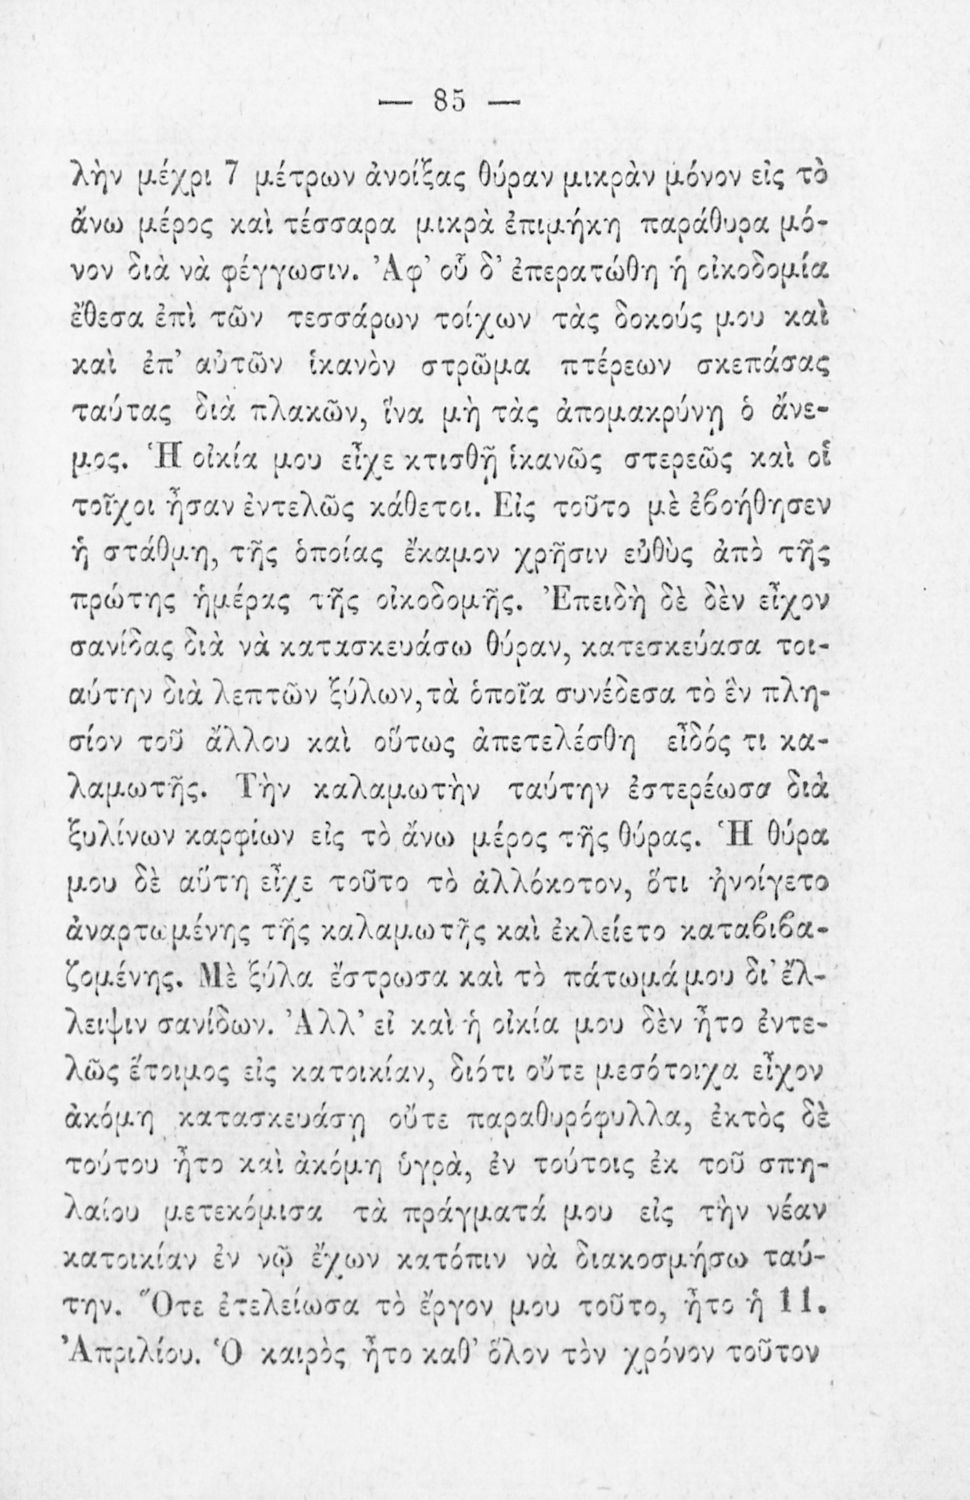 — 85 —
λὴν μέχρι 7 μέτρων ἀνοίξας θύραν μικρὰν μόνον εἰς τὸ
ἄνω μέρος καὶ τέσσαρα μικρὰ ἐπιμήκη παράθυρα μό-
νον διὰ νὰ φέγγωσιν. Ἀφ’ οὗ δ’ ἐπερατώθη ἡ οἰκοδομία
ἔθεσα ἐπὶ τῶν τεσσάρων τοίχων τὰς δοκούς μου καὶ
καὶ ἐπ’ αὐτῶν ἱκανὸν στρῶμα πτέρεων σκεπάσας
ταύτας διὰ πλακῶν, ἵνα μὴ τὰς ἀπομακρύνῃ ὁ ἄνε-
μος. Ἡ οἰκία μου εἶχε κτισθῆ ἱκανῶς στερεῶς καὶ οἱ
τοῖχοι ἦσαν ἐντελῶς κάθετοι. Εἰς τοῦτο μὲ ἐβοήθησεν
ἡ στάθμη, τῆς ὁποίας ἔκαμον χρῆσιν εὐθὺς ἀπὸ τῆς
πρώτης ἡμέρας τῆς οἰκοδομῆς. Ἐπειδὴ δὲ δὲν εἶχον
σανίδας διὰ νὰ κατασκευάσω θύραν, κατεσκεύασα τοι-
αύτην διὰ λεπτῶν ξύλων, τὰ ὁποῖα συνέδεσα τὸ ἓν πλη-
σίον τοῦ ἄλλου καὶ οὕτως ἀπετελέσθη εἶδός τι κα-
λαμωτῆς. Τὴν καλαμωτὴν ταύτην ἐστερέωσα διὰ
ξυλίνων καρφίων εἰς τὸ ἄνω μέρος τῆς θύρας. Ἡ θύρα
μου δὲ αὕτη εἶχε τοῦτο τὸ ἀλλόκοτον, ὅτι ἠνοίγετο
ἀναρτωμένης τῆς καλαμωτῆς καὶ ἐκλείετο καταβιβα-
ζομένης. Μὲ ξύλα ἔστρωσα καὶ τὸ πάτωμά μου δι’ ἔλ-
λειψιν σανίδων. Ἀλλ’ εἰ καὶ ἡ οἰκία μου δὲν ἦτο ἐντε-
λῶς ἕτοιμος εἰς κατοικίαν, διότι οὔτε μεσότοιχα εἶχον
ἀκόμη κατασκευάσῃ οὔτε παραθυρόφυλλα, ἐκτὸς δὲ
τούτου ἦτο καὶ ἀκόμη ὑγρὰ, ἐν τούτοις ἐκ τοῦ σπη-
λαίου μετεκόμισα τὰ πράγματά μου εἰς τὴν νέαν
κατοικίαν ἐν νῷ ἔχων κατόπιν νὰ διακοσμήσω ταύ-
την. Ὅτε ἐτελείωσα τὸ ἔργον μου τοῦτο, ἦτο ἡ 11.
Ἀπριλίου. Ὁ καιρὸς ἦτο καθ’ ὅλον τὸν χρόνον τοῦτον